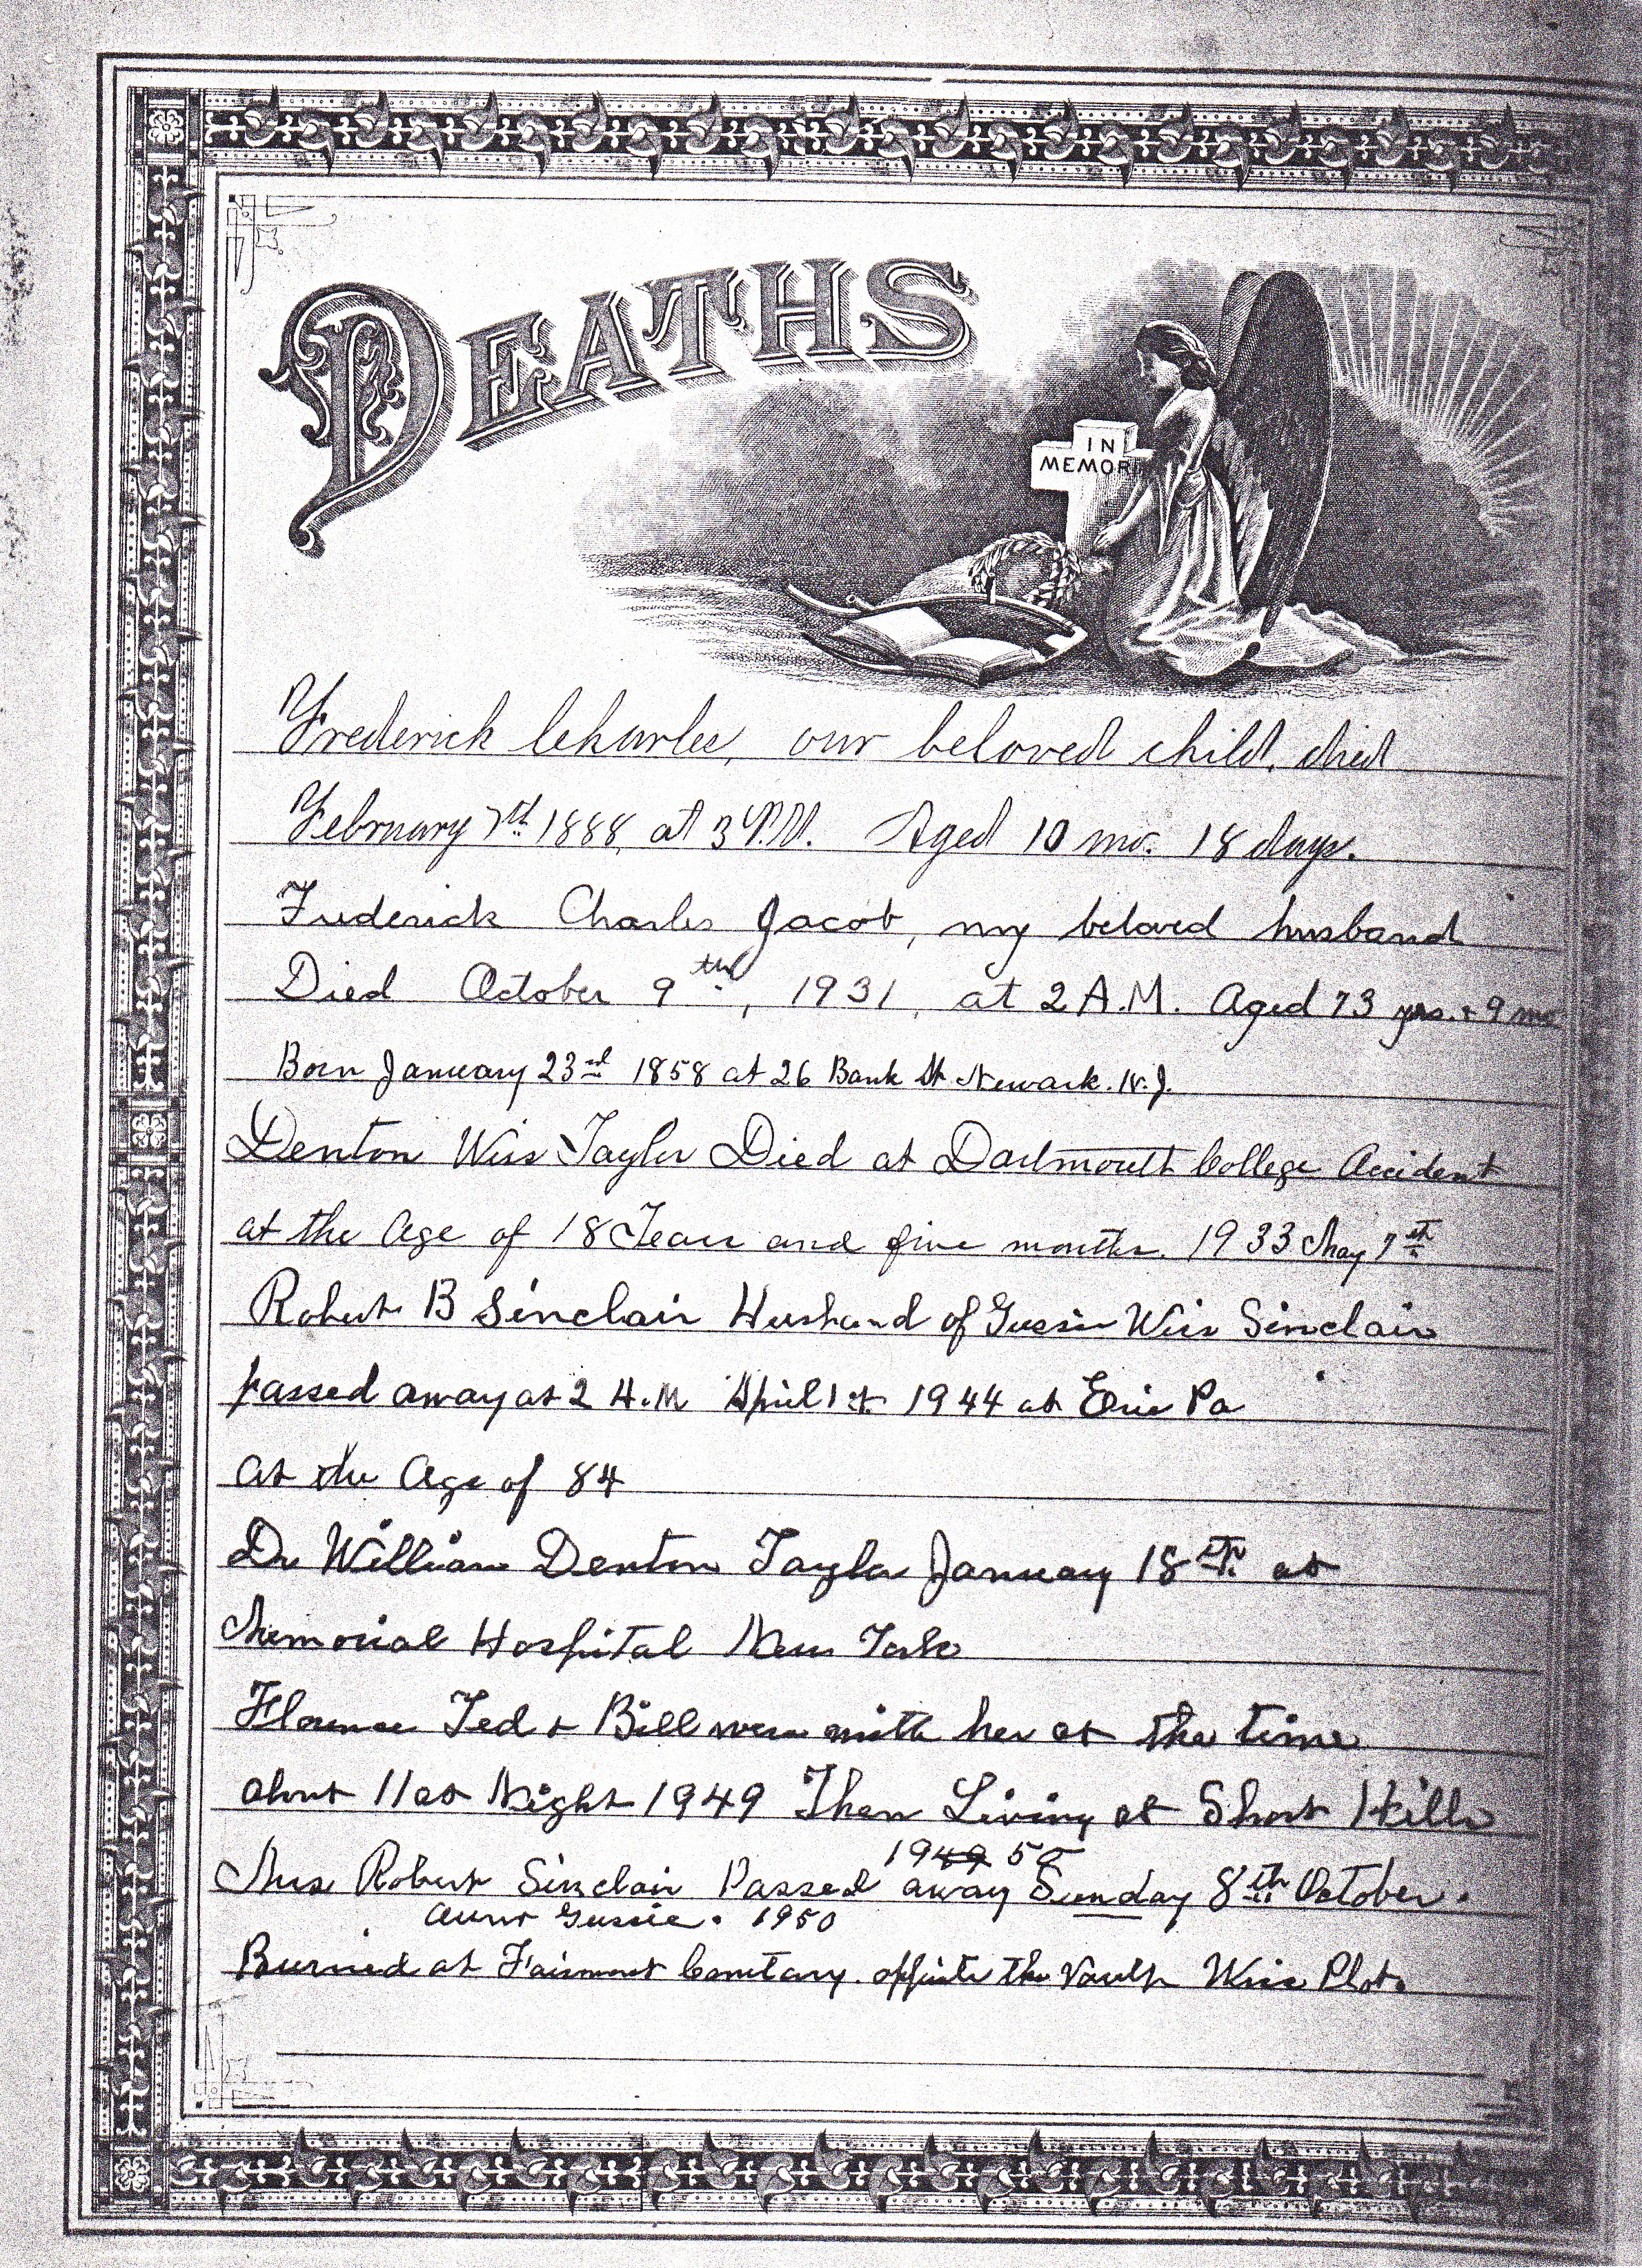 DEATHS
IN
MEMORI
Frederick Charles, our beloved child, died
February 7th 1888, at 3 P.M. Aged 10 mo. 18 days.
Frederick Charles Jacob, my beloved husband
Died October 9th, 1931, at 2 A.M. Aged 73 yrs. + 9 mo
Born January 23rd 1858 at 26 Bank St Newark. N.J.
Denton Wiss Taylor Died at Dartmouth College Accident
at the Age of 18 Years and five months. 1933 May 7th
Robert B Sinclair Husband of Gussie Wiss Sinclair
passed away at 2 A.M April 1st 1944 at Erie Pa
at the Age of 84
Dr William Denton Taylor January 18th at
Memorial Hospital New York
Florence Ted + Bill were with her at the time
about 11 at Night 1949 Then Living at Short Hills
1949 50
Mrs Robert Sinclair Passed away Sunday 8th October.
Aunt Gussie. 1950
Burried at Fairmount Cemetary. oppsite the Vault Wiss Plot.